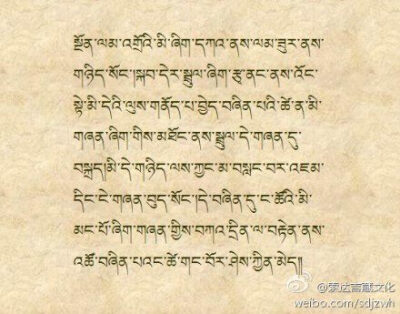 སྔོན་ལམ་འགྲོའི་མི་ཞིག་དཀའ་ནས་ལམ་ཟུར་ནས་
གཉིད་སོང་།སྐབ་དེར་སྦྲུལ་ཞིག་རྩྭ་ནང་ནས་འོང་
སྟེ་མི་དེའི་ལུས་གནོད་པ་བྱེད་བཞིན་པའི་ཚེ་ན་མི་
གཞན་ཞིག་གིས་མཐོང་ནས་སྦྲུལ་དེ་གཞན་དུ་
བསྐྲད།མི་དེ་གཉིད་ལས་ཀྱང་མ་བསླང་བར་འཇམ་
དིང་ངེ་གཞན་བུད་སོང་།དེ་བཞིན་དུ་ང་ཚོའི་མི་
མང་པོ་ཞིག་གཞན་གྱིས་བཀའ་དྲིན་ལ་བརྟེན་ནས་
འཚོ་བཞིན་པའང་ཚེ་གང་བོར་ཤེས་ཀྱིན་མེད།།
@荣达吉藏文化
weibo.com/sdjzwh